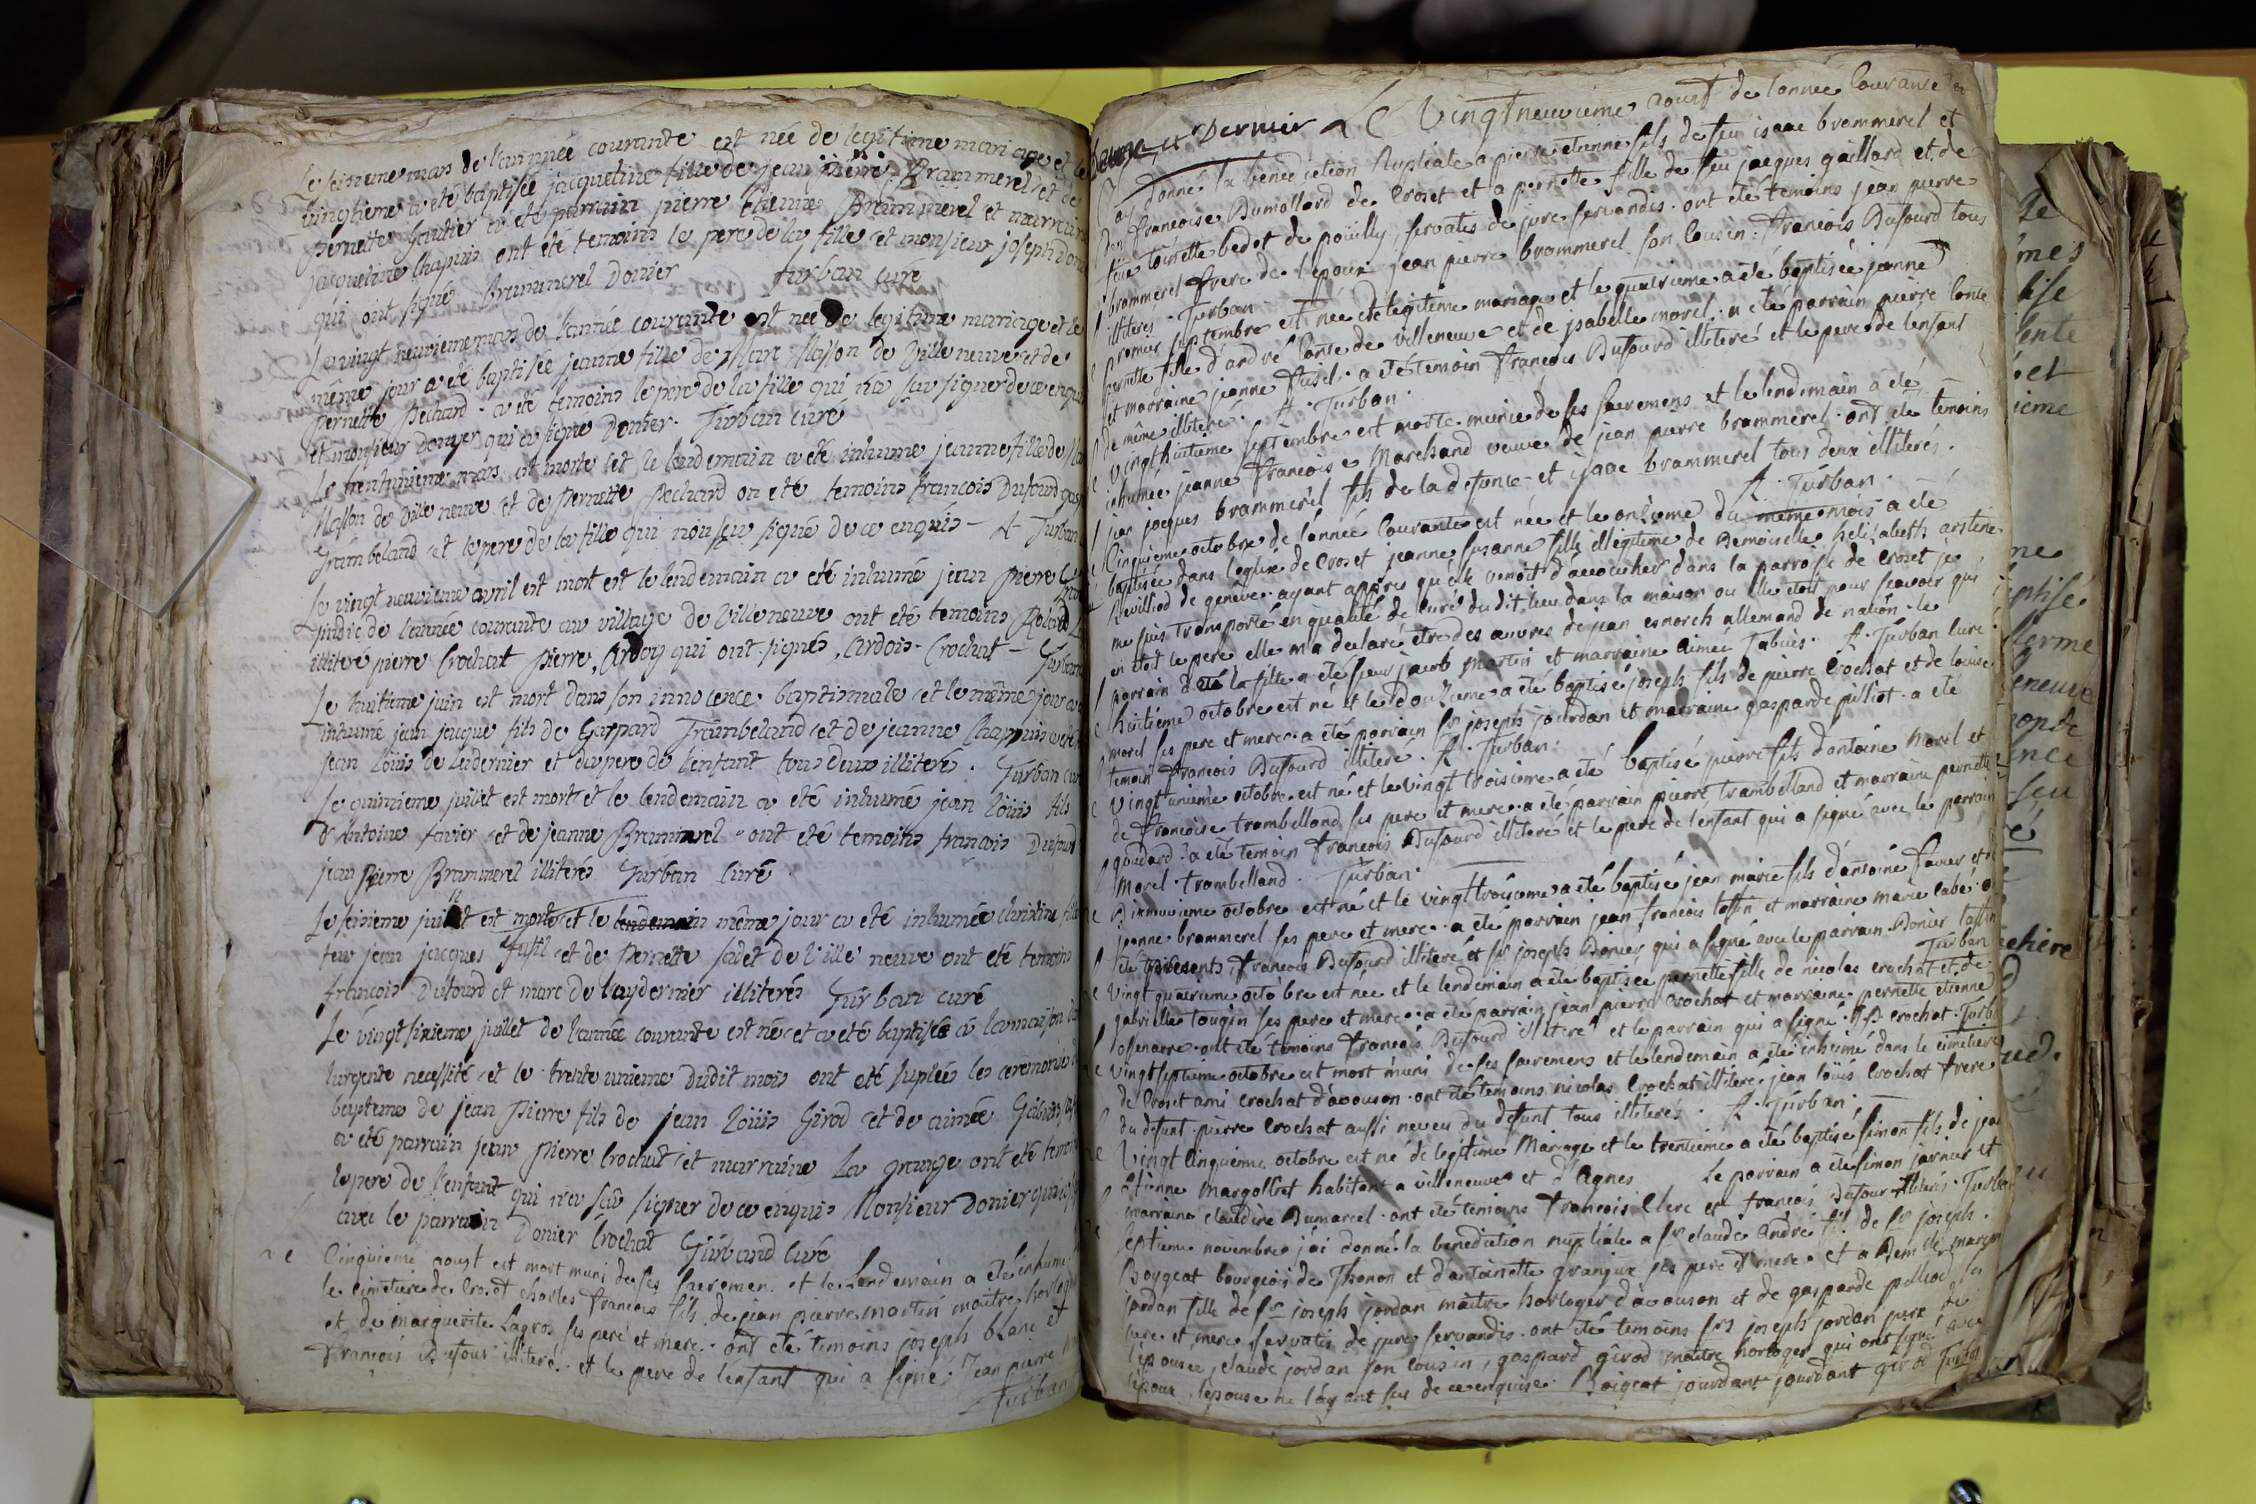 Le seizieme mars de l'année courante est née de legitime mariage et le
vingtieme a été baptisée jacqueline fille de jean pierre Brammerel et de
Pernette Gautier a été parrain pierre Etienne Brammerel et marraine
jacqueline Chapuis ont été temoins le pere de la fille et monsieur joseph
qui ont signé Brammerel Donier Turban curé
Le vingt neuvieme mars de l'année courante est née de legitime mariage et le
même jour a été baptisée jeanne fille de Marc Masson de Villeneuve et de
Pernette Pechard a été temoins le pere de la fille qui n'a sçu signer de ce enquis
et monsieur Donier qui a signé Donier. Turban curé
Le trentunieme mars est morte et le lendemain a été inhumé jeanne fille de
Masson de Ville neuve et de Pernette Pechard on été temoins francois Dufourd
Trambeland et le pere de la fille qui n'on sçu signé de ce enquis - A Turban
Le vingt neuvieme avril est mort est le lendemain a eté inhumé jean Pierre
de l'année courante au village de Villeneuve ont été temoins
illiteré pierre Crochat Pierre Cardoy qui ont signés, Cardois - Crochat - Turban
Le huitieme juin est mort dans son innocence baptismale et le même jour a
inhumé jean jacque fils de Gaspard Trambeland et de jeanne Chappuis
jean Loüis de Leidernier et du pere de l'enfant tous deux illiteré. Turban
Le quinzieme juillet est mort et le lendemain a été inhumé jean loüis fils
d'Antoine favier et de jeanne Brammerel ont été temoins francois Dufourd
jean Pierre Brammerel illiterés Turban Curé.
Le seizieme juillet est morte et le lendemain même jour a été inhumée christine
feu jean jacques Fusil et de Pernette Cadet de Ville neuve ont été temoins
francois Dufourd et marc de Laydernier illiterés Turban curé
Le vingt sixieme juillet de l'année courante est né et a été baptisée à la maison
l'urgente necessité et le trente unieme dudit mois ont été suplées les ceremonies
bapteme de jean Pierre fils de jean Loüis Girod et de aimée
a été parrain jean Pierre Crochat et marraine La grange ont été temoins
le pere de l'enfant qui n'a sçû signer de ce enquis Monsieur Donier
avec le parrain Donier Crochat Turban Curé
Le Cinquieme aoust est mort muni de ses sacremen. et le lendemain a été inhumé
le cimetiere de Crozet charles francois fils de jean pierre martin maitre
et de marguerite Lagros ses pere et mere. ont été temoins joseph blanc et
francois Dufour illiteré. et le pere de l'enfant qui a signé. Jean pierre
Turban
et Dernier Le Vingt neuvieme aoust de l'année courante
j'ay donné la benediction Nuptiale a pierre etienne fils de feu isaac brammerel et
d'en francoise Dumollard de Crozet et a pernette fille de feu jacques gaillard et de
feüe toinette bedot de pouilly, servatis de jure servandis. ont été temoins jean pierre
brammerel frere de l'epoux jean pierre brammerel son cousin. francois Dufourd tous
illiterés. Turban.
Le premier septembre est née de legitime mariage et le quatrieme a été baptisée jeanne
pernette fille d'andré Conte de villeneuve et de jsabelle morel. a été parrain pierre Conte
et marraine jeanne fusel. a été temoin francois Dufourd illiteré et le pere de l'enfant
de même illiteré. A. Turban.
Le vingt huitieme septembre est morte munie de ses sacremens et le lendemain a été
inhumée jeanne francoise Marchand veuve de jean pierre brammerel. ont été temoins
jean jacques brammerel fils de la defunte et isaac brammerel tous deux illiterés.
A. Turban.
Le Cinquieme octobre de l'année Courante est née et le onzieme du même mois a été
baptisée dans l'eglise de Crozet jeanne susanne fille illegitime de Demoiselle helisabeth arstene
Revilliod de genêve. ayant appris qu'elle venoit d'accoucher dans la parroisse de Crozet je
me suis transporté en qualité de Curé du dit lieu dans la maison ou elle étoit pour sçavoir qui
en étoit le pere elle m'a declaré être des œuvres de jean esnorch allemand de nation. le
parrain de la fille a été sieur jacob martin et marraine aimée Tabuis. A. Turban curé
Le huitieme octobre est né et le douzieme a été baptisé joseph fils de pierre Crochat et de louise
morel ses pere et mere. a été parrain sr joseph jourdan et marraine gasparde pilliot. a été
temoin francois Dufourd illiteré. A. Turban.
Le vingt unieme octobre est né et le vingt troisieme a été baptisé pierre fils d'antoine morel et
de francoise trambelland ses pere et mere. a été parrain pierre trambelland et marraine pernette
goudard. a été temoin francois Dufourd illiteré et le pere de l'enfant qui a signé avec le parrain
Morel. trambelland. Turban.
Le Dixneuvieme octobre est né et le vingt troisieme a été baptisé jean marie fils d'antoine favier et de
jeanne brammerel ses pere et mere. a été parrain jean francois tassin et marraine marie Cabé.
été presents francois Dufourd illiteré et sr joseph Donier qui a signé avec le parrain. Donier tassin
Turban
Le vingt quatrieme octobre est née et le lendemain a été baptisée pernette fille de nicolas crochat et de
gabrielle tougin ses pere et mere. a été parrain jean pierre Crochat et marraine pernette etienne
ont été temoins francois Dufourd illiteré et le parrain qui a signé. J.P. crochat. Turb
Le vingt septieme octobre est mort muni de ses sacremens et le lendemain a été inhumé dans le cimetiere
de Crozet ami Crochat d'avouson. ont été temoins nicolas Crochat illiteré. jean loüis Crochat frere
du defunt. pierre Crochat aussi neveu du defunt tous illiterés. A. Turban.
Le Vingt cinquieme octobre est né de legitime Mariage et le trentieme a été baptisé simon fils de jean
Etienne margollret habitant a villeneuve et d'agnes Le parrain a été simon jarnier et
marraine claudine Dumarcel. ont été temoins francois Clerc et francois Dufour illiterés. Turban
Le Septieme novembre j'ai donné la benediction nuptiale a sr claude andré fils de sr joseph
Boygeat bourgeois de Thonon et d'antoinette granjux ses pere et mere. et a Demlle
jordan fille de sr joseph jordan maitre horloger d'avouson et de gasparde pilliod ses
pere et mere servatis de jure servandis. ont été temoins srs joseph jordan pere de
l'epouse, claude jordan son cousin, gaspard girod maitre horloger qui ont signé avec
l'epoux. l'epouse ne l'ayant sçu de ce enquise. Boigeat jourdant jourdant girod Turban